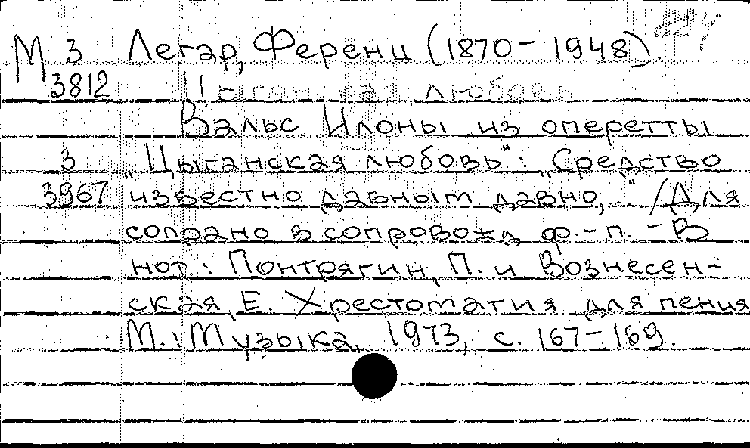 М 3 Легар, Ференц (1870-1948)
3812 Цыганская любовь
Вальс Илоны из оперетты
3 "Цыганская любовь": "Средство
3967 известно давным давно," /Для
сопрано в сопровожд ф.-п. - В
нот.: Понтрягин, П. и Вознесен-
ская, Е. Хрестоматия для пения
М., Музыка, 1973, с. 167-169.